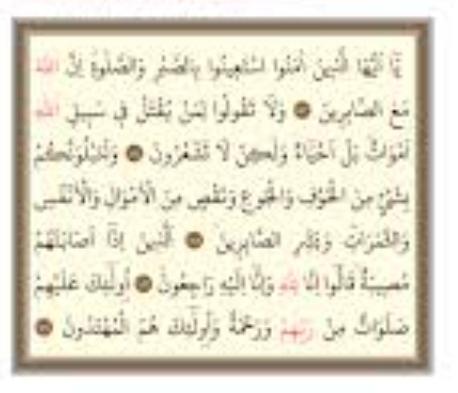 يَٓا اَيُّهَا الَّذ۪ينَ اٰمَنُوا اسْتَع۪ينُوا بِالصَّبْرِ وَالصَّلٰوةِۜ اِنَّ اللّٰهَ
مَعَ الصَّابِر۪ينَ ۞ وَلَا تَقُولُوا لِمَنْ يُقْتَلُ ف۪ي سَب۪يلِ اللّٰهِ
اَمْوَاتٌۜ بَلْ اَحْيَٓاءٌ وَلٰكِنْ لَا تَشْعُرُونَ ۞ وَلَنَبْلُوَنَّكُمْ
بِشَيْءٍ مِنَ الْخَوْفِ وَالْجُوعِ وَنَقْصٍ مِنَ الْاَمْوَالِ وَالْاَنْفُسِ
وَالثَّمَرَاتِۜ وَبَشِّرِ الصَّابِر۪ينَ ۞ اَلَّذ۪ينَ اِذَٓا اَصَابَتْهُمْ
مُص۪يبَةٌ قَالُٓوا اِنَّا لِلّٰهِ وَاِنَّٓا اِلَيْهِ رَاجِعُونَ ۞ اُو۬لٰٓئِكَ عَلَيْهِمْ
صَلَوَاتٌ مِنْ رَبِّهِمْ وَرَحْمَةٌ وَاُو۬لٰٓئِكَ هُمُ الْمُهْتَدُونَ ۞